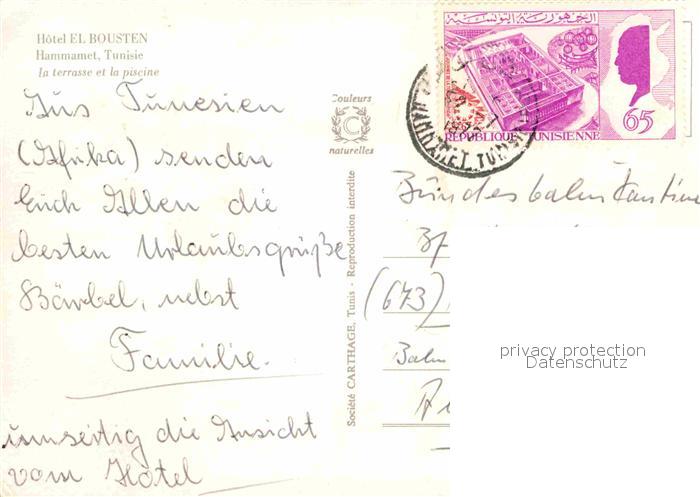 Hôtel EL BOUSTEN
Hammamet, Tunisie
la terrasse et la piscine
Aus Tunesien
(Afrika) senden
Euch Allen die
besten Urlaubsgrüße
Bärbel, nebst
Familie.
umseitig die Ansicht
vom Hotel
Couleurs
C
naturelles
Société CARTHAGE, Tunis - Reproduction interdite
الجمهورية التونسية
65
REPUBLIQUE TUNISIENNE
HAMMAMET TUNISIE
Bundesbahn Kantine
Bf
(673)
Bahn
privacy protection
Datenschutz